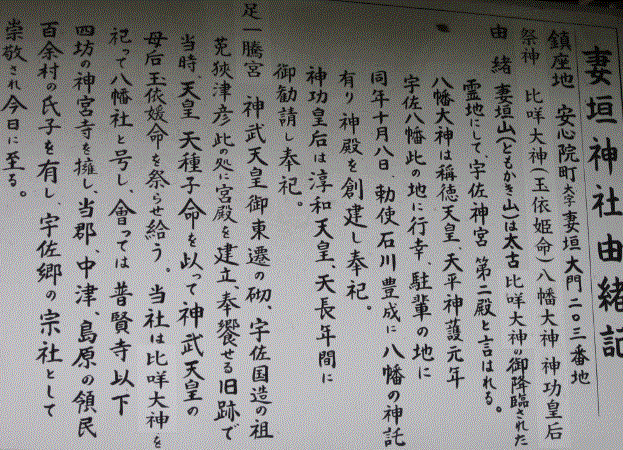 妻垣神社由緒記
鎮座地 安心院町大字妻垣大門二〇三番地
祭神 比咩大神(玉依姫命)八幡大神 神功皇后
由緒 妻垣山(ともかき山)は太古 比咩大神の御降臨された
霊地にして、宇佐神宮 第二殿と言はれる。
八幡大神は稱徳天皇、天平神護元年
宇佐八幡此の地に行幸、駐輦の地に
同年十月八日、勅使石川豊成に八幡の神託
有り神殿を創建し奉祀。
神功皇后は淳和天皇、天長年間に
御勧請し奉祀。
足一騰宮 神武天皇御東遷の砌、宇佐国造の祖
莵狭津彦此の処に宮殿を建立、奉饗せる旧跡で
当時、天皇 天種子命を以って神武天皇の
母后玉依媛命を祭らせ給う。当社は比咩大神を
祀って八幡社と号し、會っては普賢寺以下
四坊の神宮寺を擁し、当郡、中津、島原の領民
百余村の氏子を有し、宇佐郷の宗社として
崇敬され今日に至る。